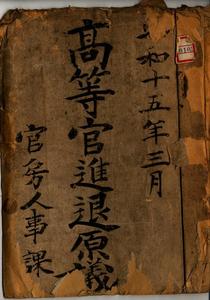 和十五年三月
高等官進退原議
官房人事課